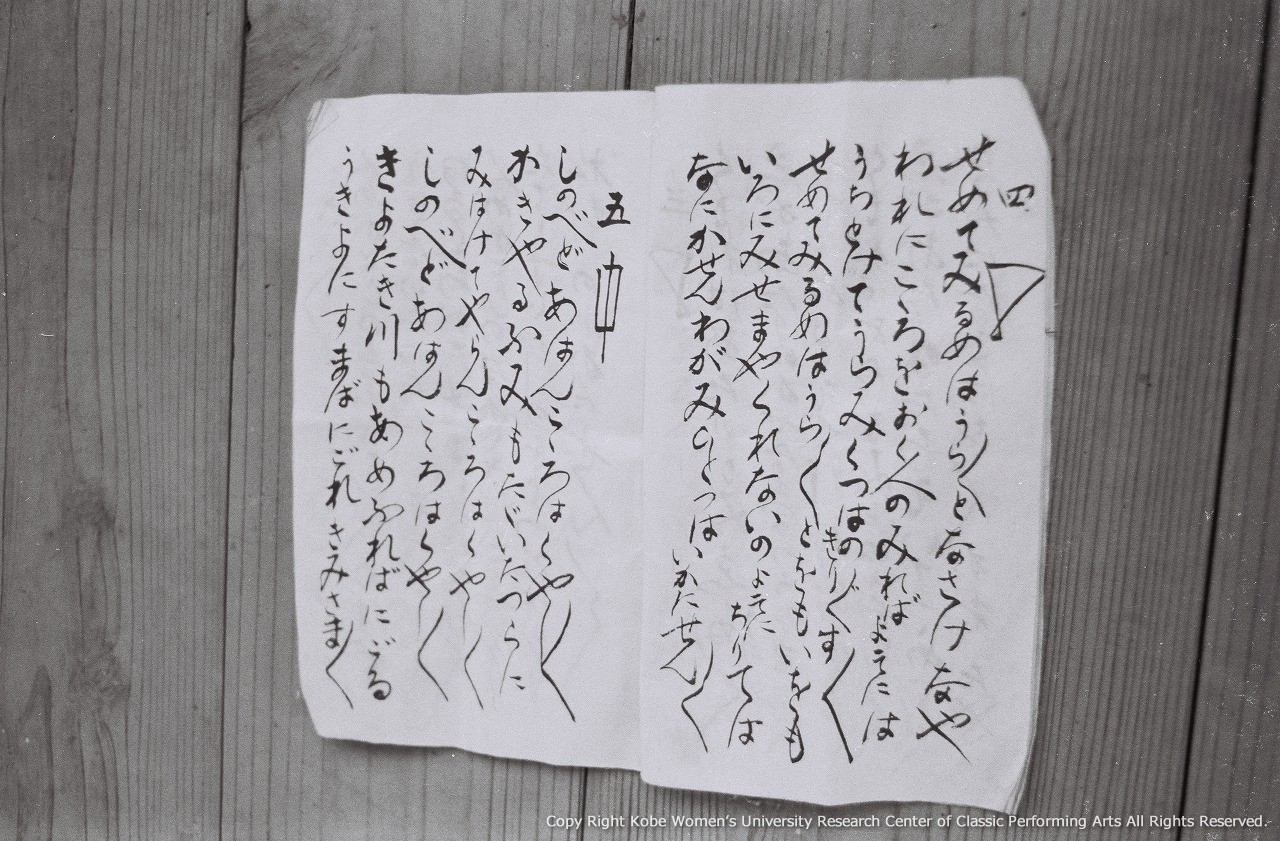 四
せめてみるめはうら〳〵となさけなや
われにこゝろをおく人のみればよそには
うちとけてうらみくつはのきりぐす〳〵
せめてみるめはうら〳〵とをもいをも
いろにみせまやくれないのよそにちりては
なにかせんわがみひとつはいかたせん〳〵
五 中
しのべどあはんこころはくやし〳〵
かきやるふみもたゞいたつらに
みはけてやらんこころはくやし〳〵
しのべどあはんこころはくやし〳〵
きよたき川もあめふればにごる
うきよにすまばにごれきみさま〳〵
Copy Right Kobe Women's University Research Center of Classic Performing Arts All Rights Reserved.